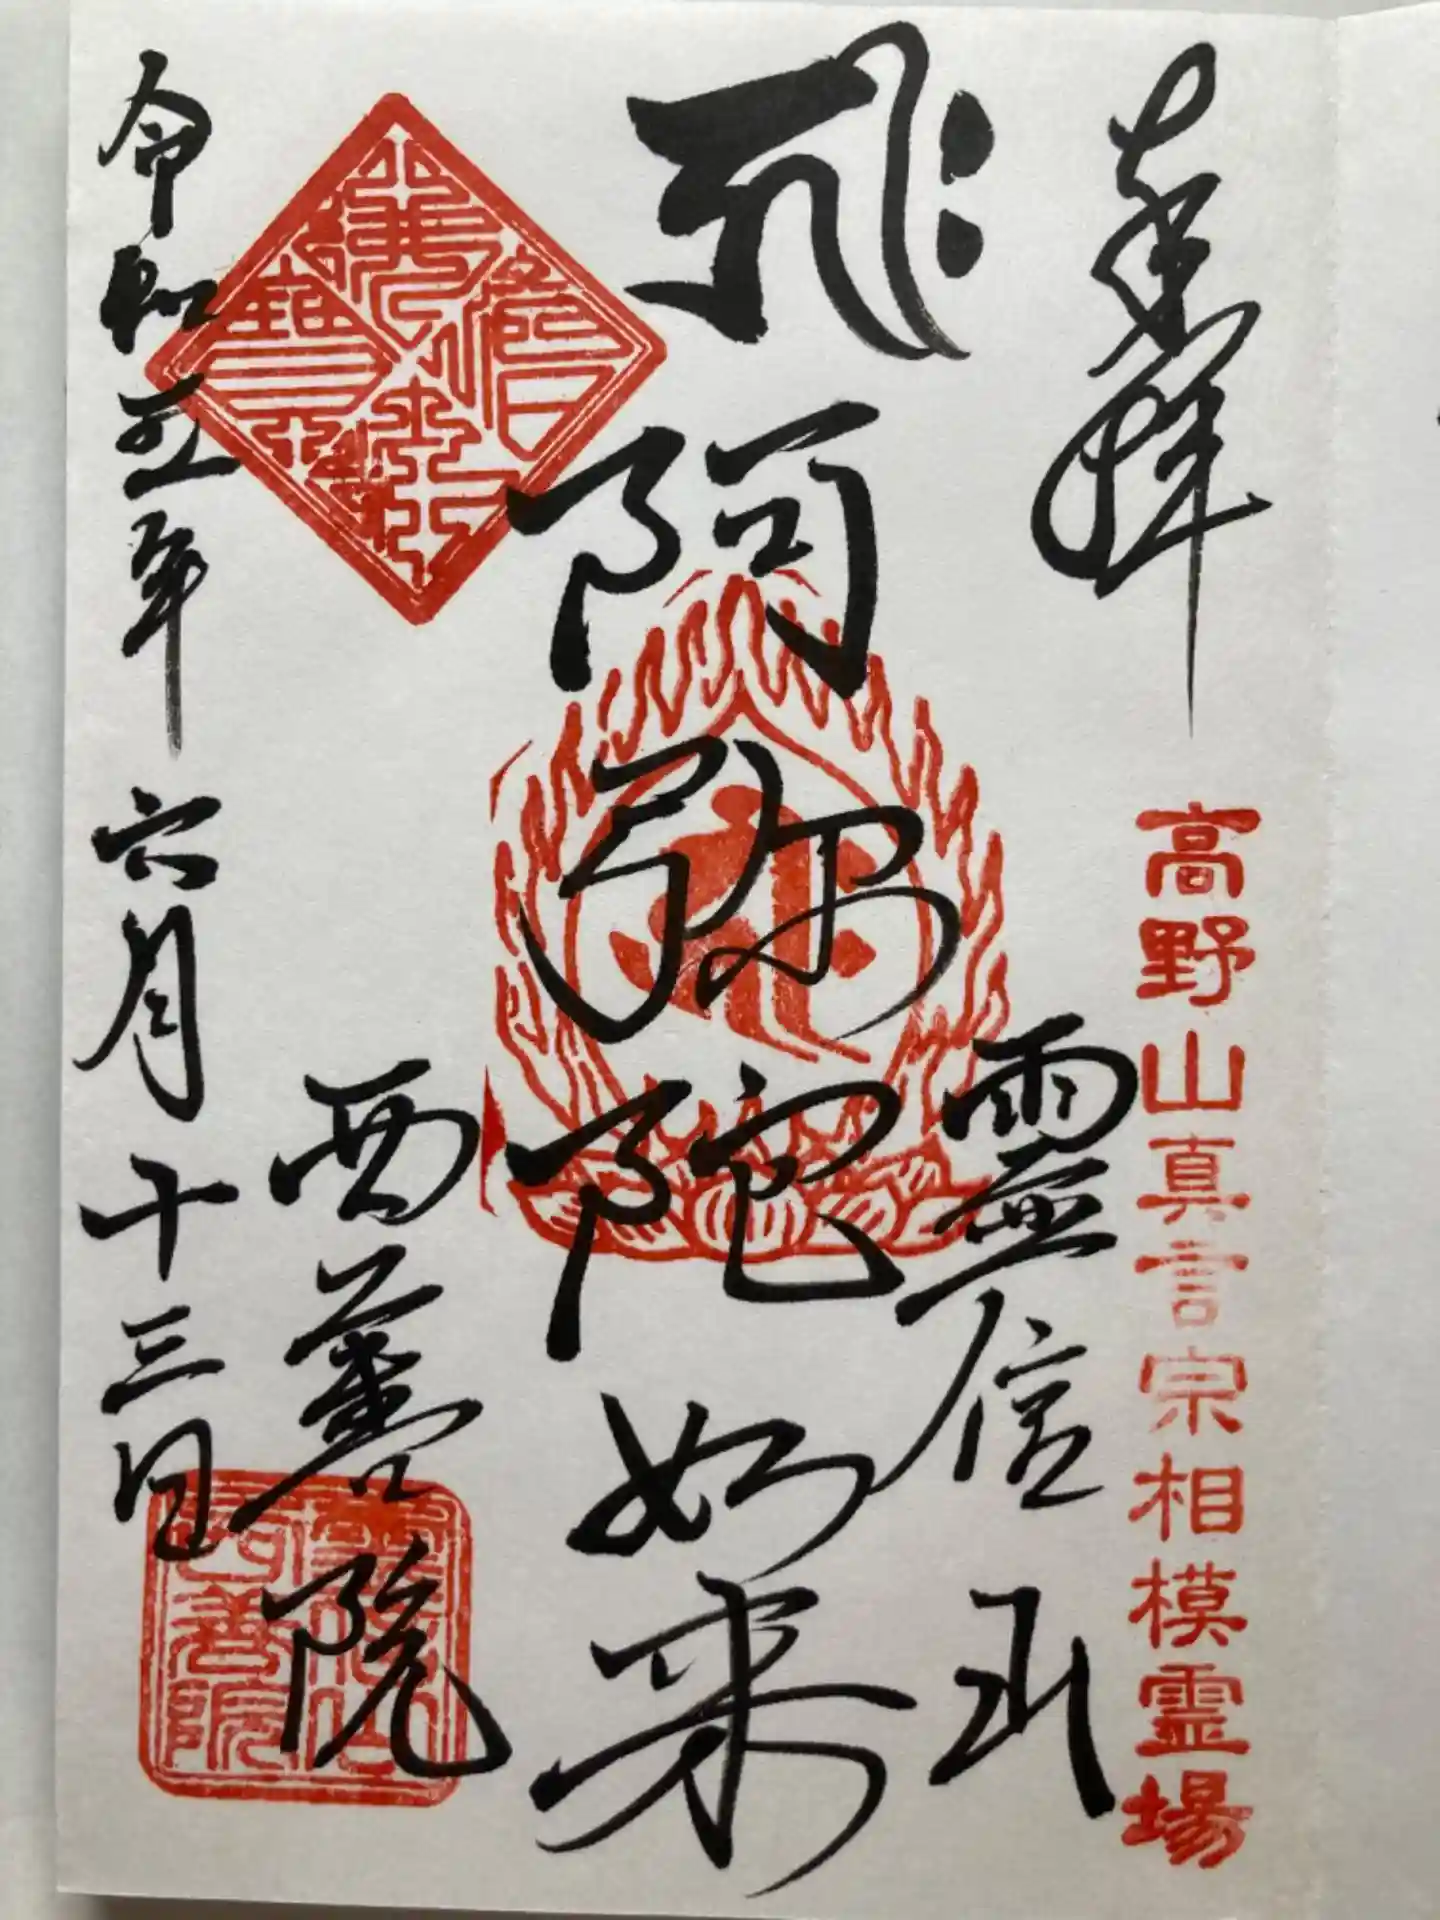 奉拝
高野山真言宗相模霊場
靈信山
阿弥陀如来
西善院
令和五年六月十三日
佛法僧寳
靈信山西善院